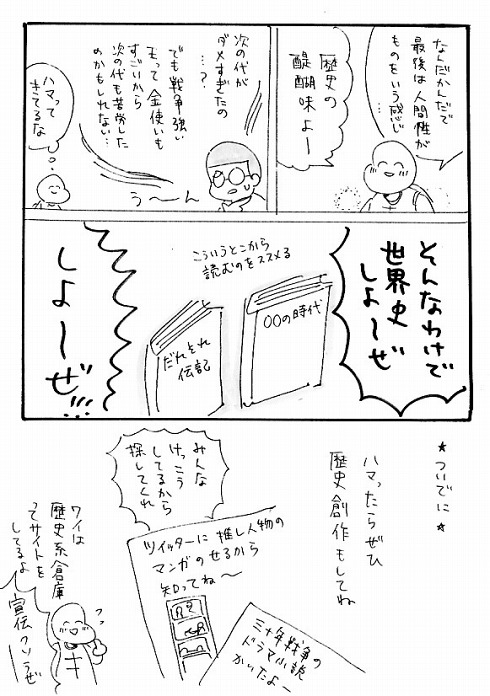 なんだかんだで
最後は人間性が
ものをいう感じ
…
歴史の
醍醐味よー
次の代が
ダメすぎたの
…?
でも戦争強い
王って金使いも
すごいから
次の代も苦労した
のかもしれない…
う〜〜ん
ハマって
きてるな
そんなわけで
世界史
しよーぜ
こういうとこから
読むのをススメる
〇〇の時代
だれそれ
伝記
しよーぜ!!!
★ついでに★
ハマったらぜひ
歴史創作もしてね
みんな
けっこう
してるから
探してくれ
ツイッターに推し人物の
マンガのせるから
知ってね〜
三十年戦争の
ドラマ小説
かいたよ
ワイは
歴史系倉庫
ってサイトを
してるよ
宣伝